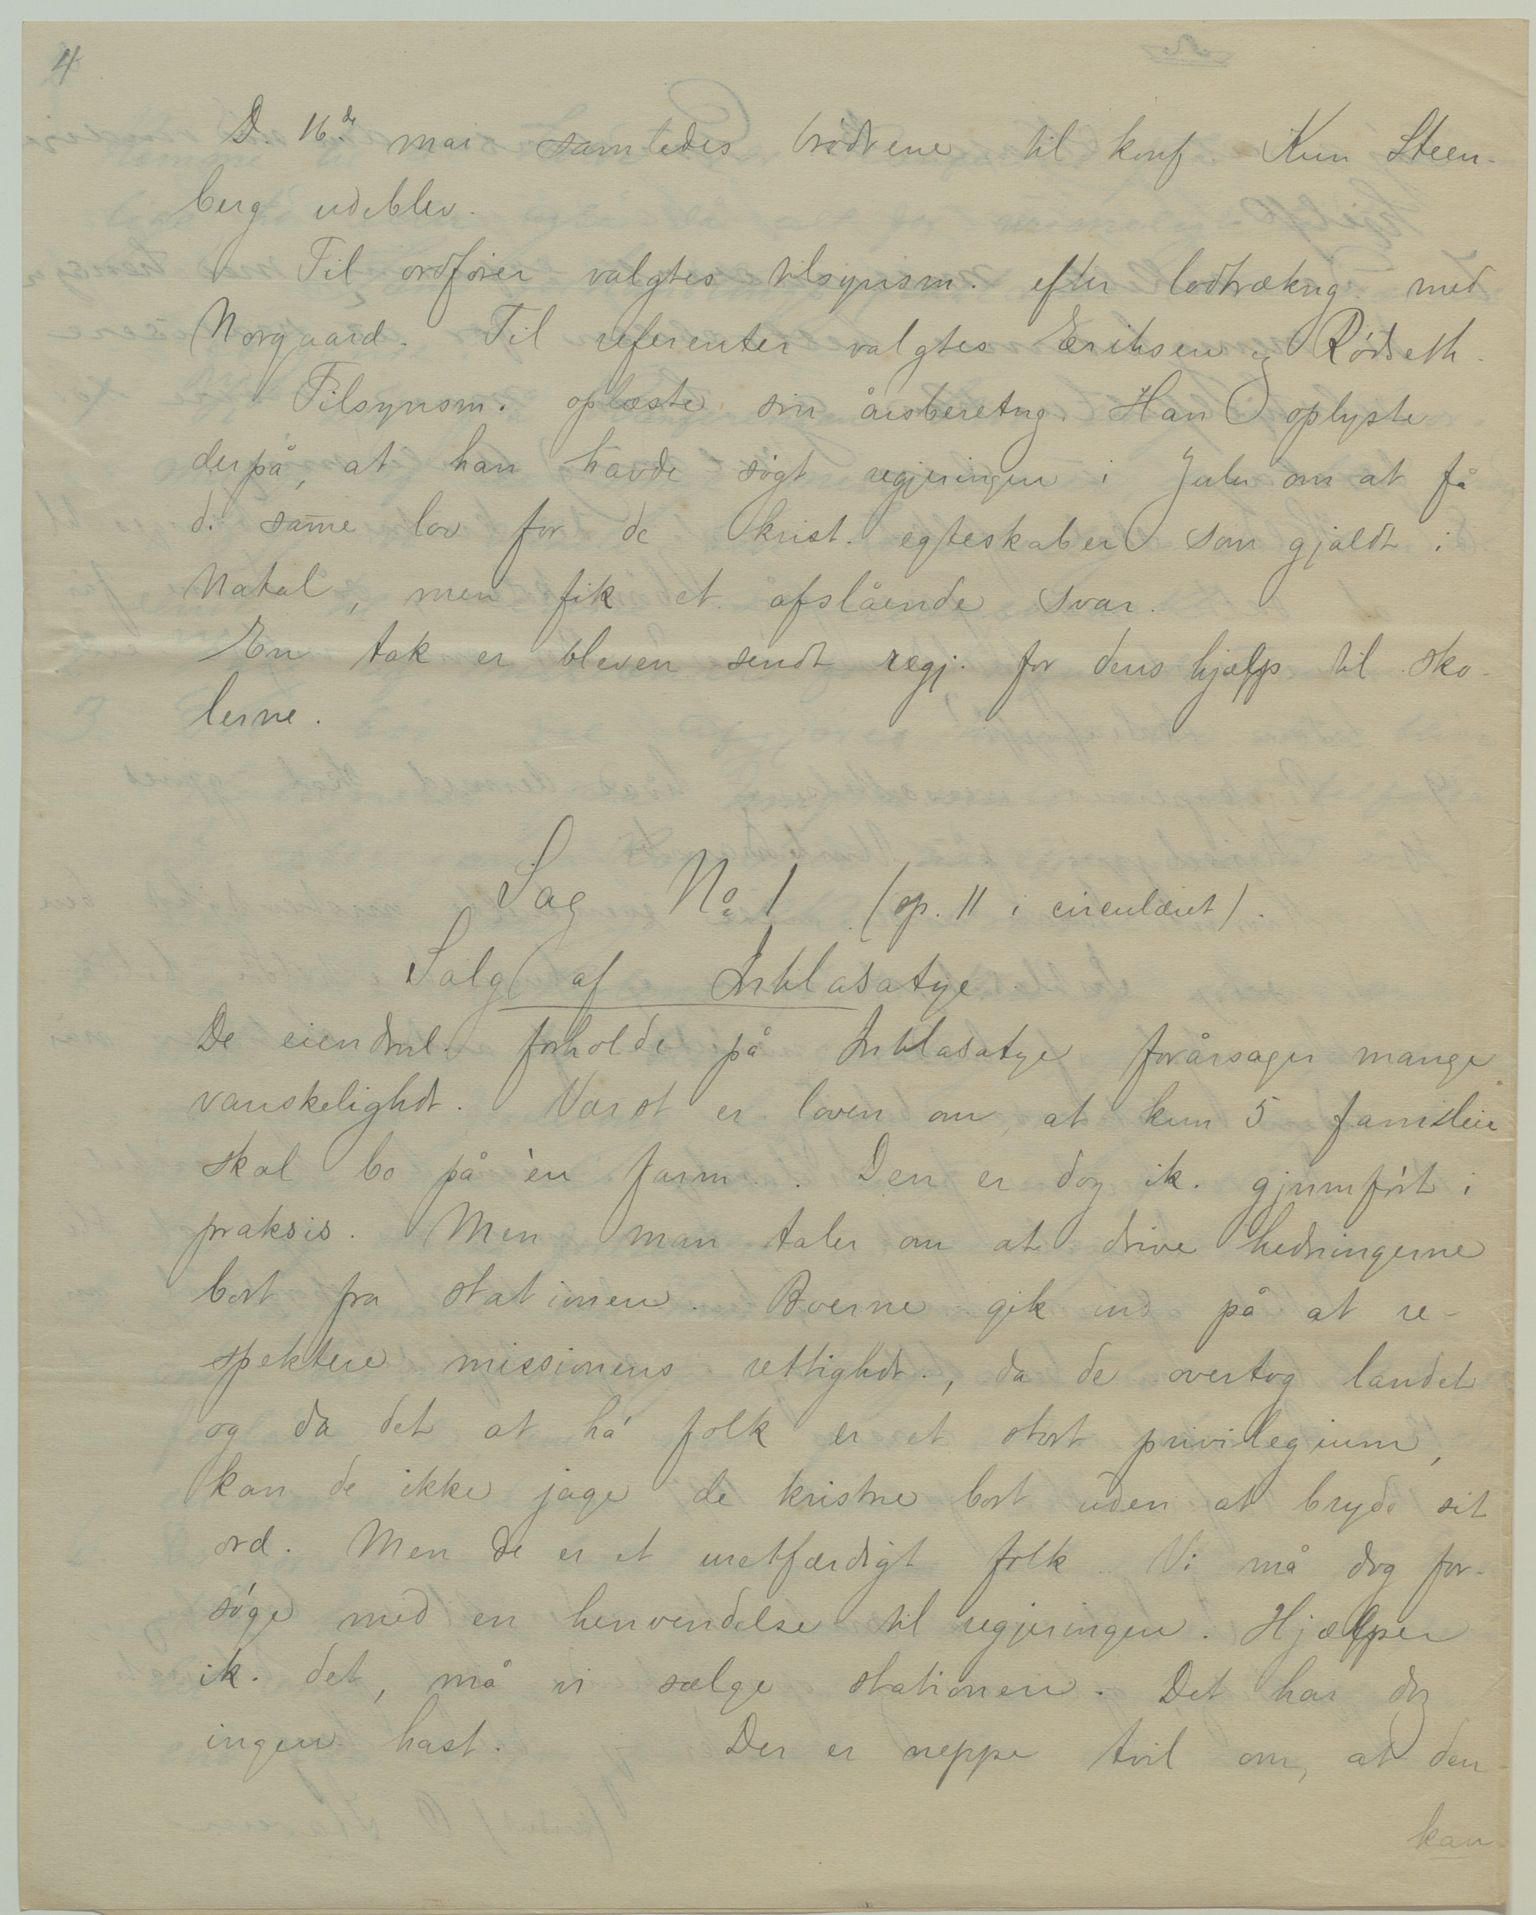 4
D. 16de mai samledes brødrene til konf. Kun Steen-
berg udeblev.
Til ordfører valgtes tilsynsm. efter lodtrækng. med
Norgaard. Til referenter valgtes Eriksen og Rødseth.
Tilsynsm. oplæste sin årsberetng. Han oplyste
derpå, at han havde søgt regjeringen i Zulu om at få
d. samme lov for de krist. egteskaber som gjaldt i
Natal, men fik et afslående svar.
En tak er bleven sendt regj. for dens hjælp til sko-
lerne.
Sag No 1 (op. 11 i cirkulæret).
Salg af Inhlasatye.
De eiendml. forholde på Inhlasatye forårsager mange
vanskelighdr. Værst er loven om, at kun 5 familier
skal bo på èn farm. Den er dog ik. gjnmført i
praksis. Men man taler om at drive hedningerne
bort fra stationen. Boerne gik ind på at re-
spektere missionens rettighdr., da de overtog landet
og da det at há folk er et stort privilegium,
kan de ikke jage de kristne bort uden at bryde sit
ord. Men de er et uretfærdigt folk. Vi må dog for-
søge med en henvendelse til regjeringen. Hjælper
ik. det, må vi sælge stationen. Det har dog
ingen hast. Der er neppe tvil om, at den
kan